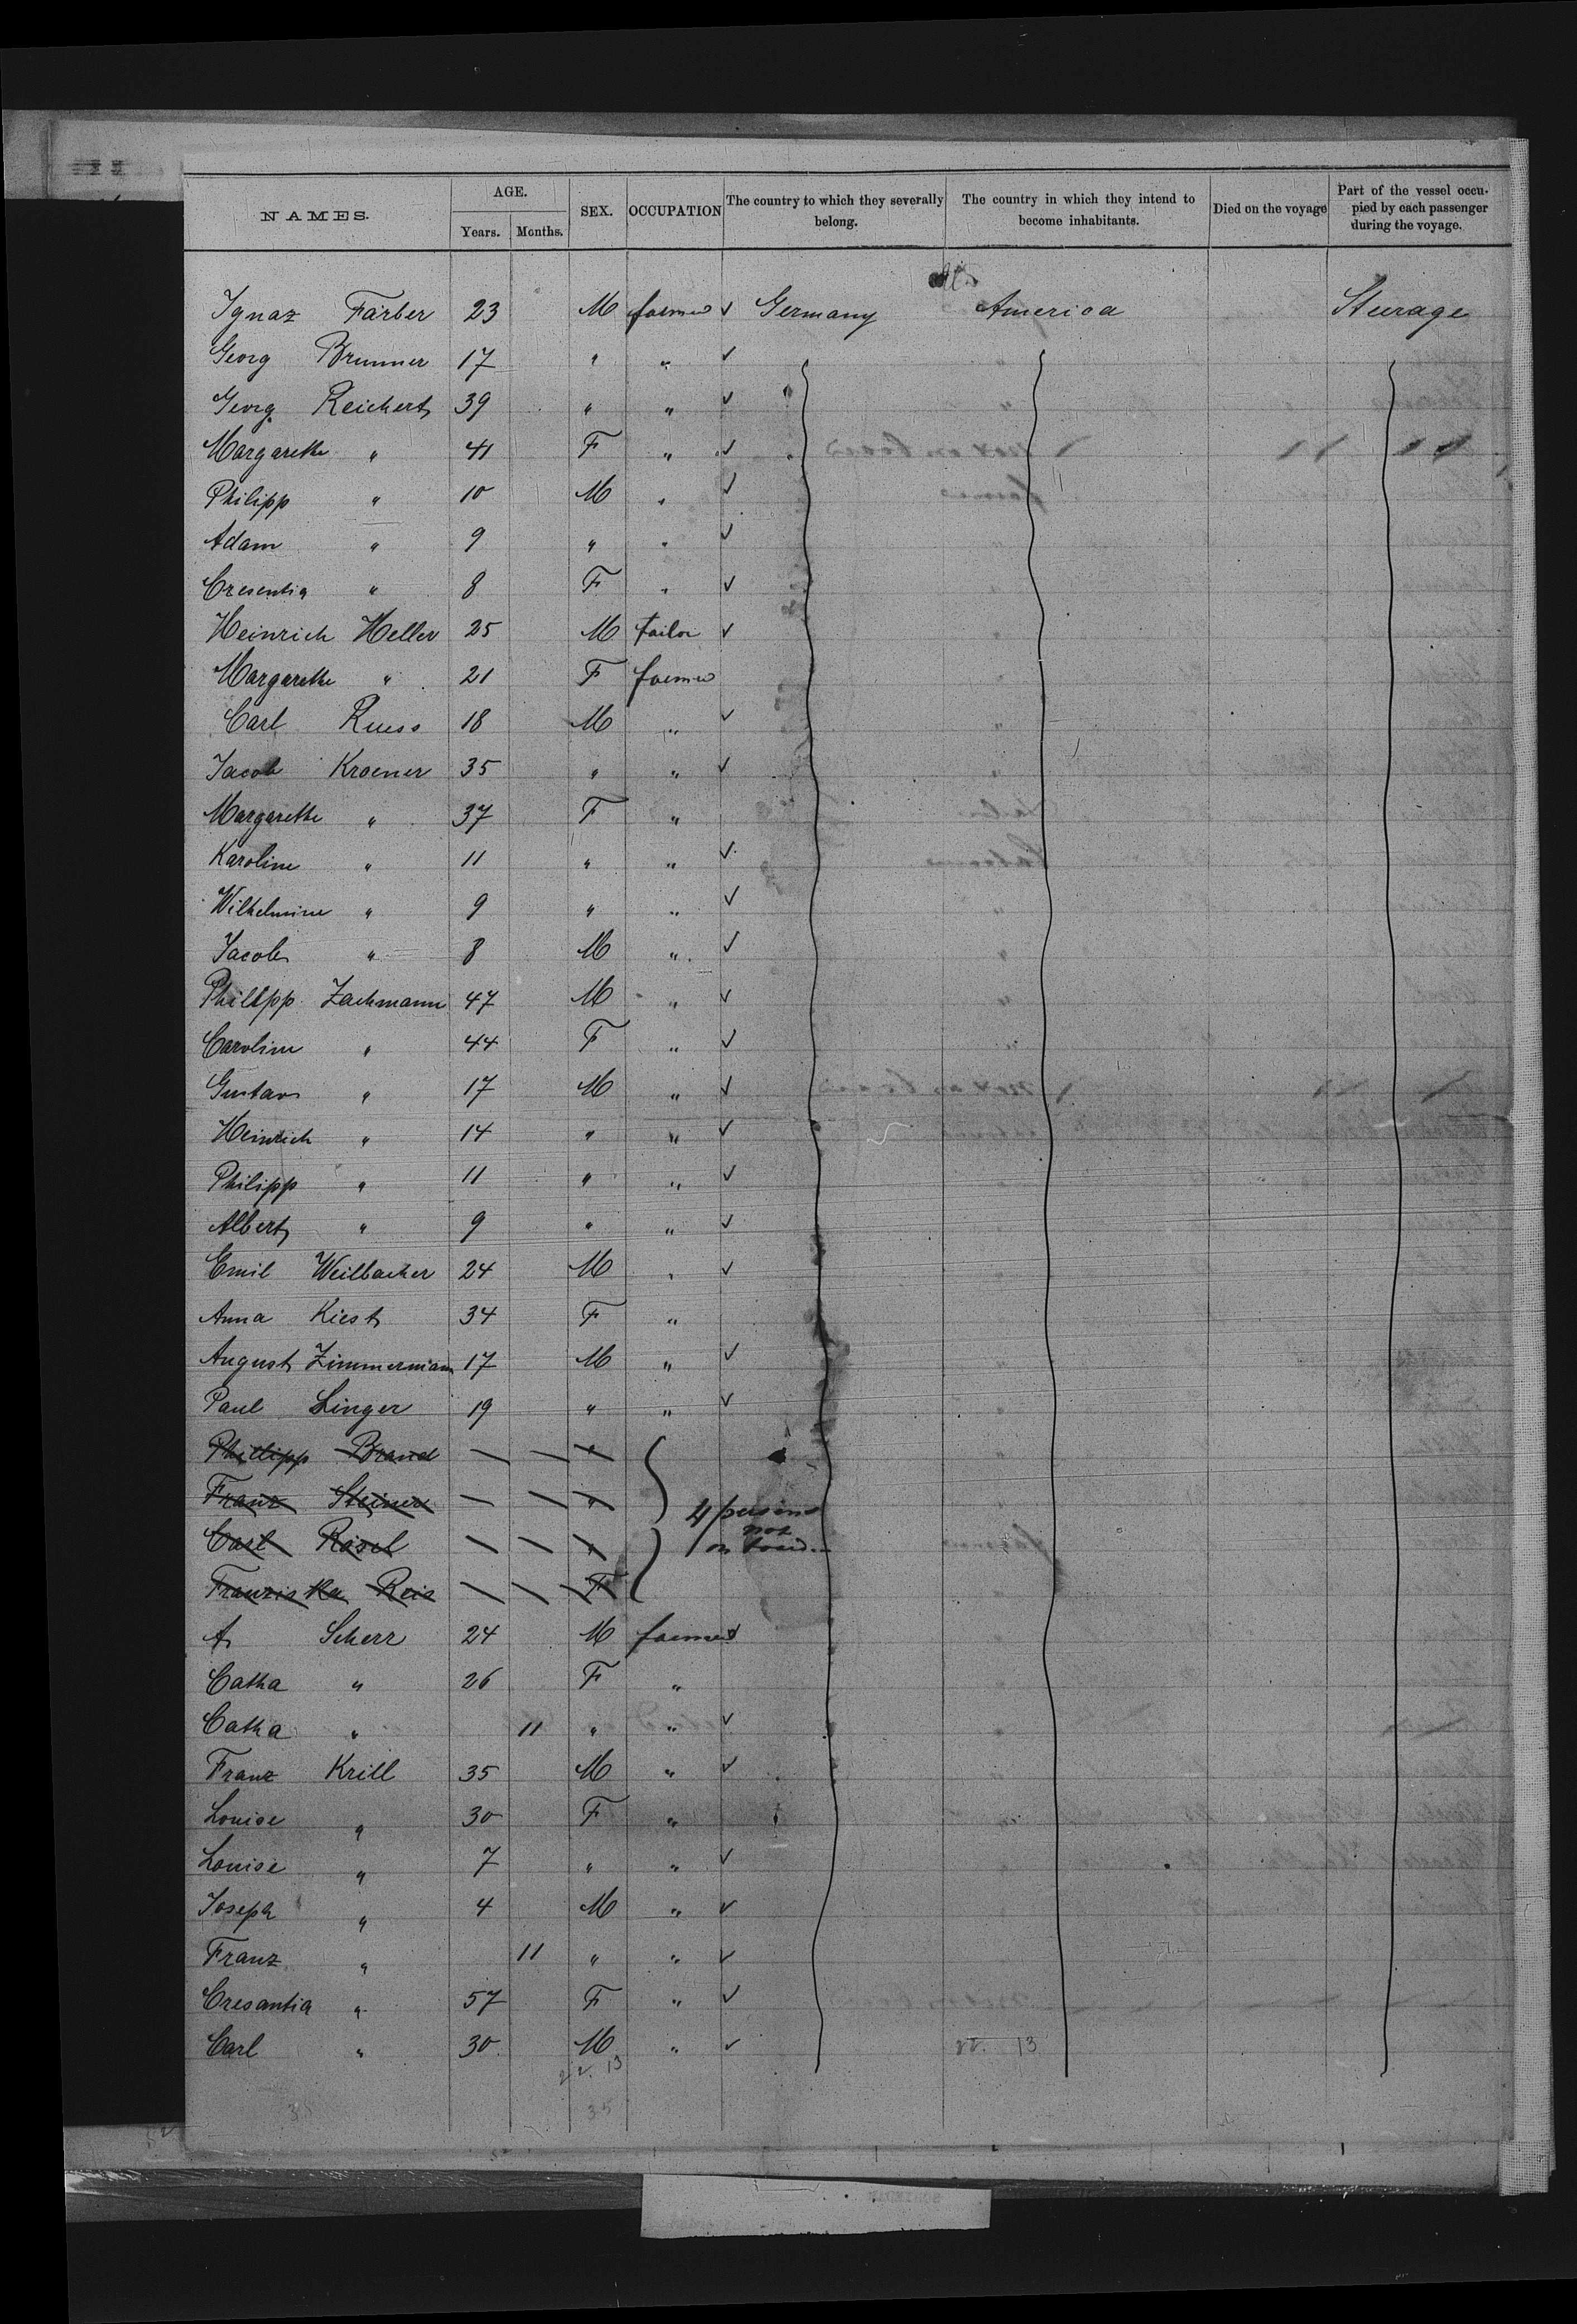 NAMES. AGE. Years. Months. SEX. OCCUPATION The country to which they severally belong. The country in which they intend to become inhabitants. Died on the voyage Part of the vessel occupied by each passenger during the voyage.
Ignaz Farber 23 M farmer ✓ Germany America Steerage
Georg Brunner 17 " " ✓
Georg Reichert 39 " " ✓
Margarethe " 41 F " ✓
Philipp " 10 M " ✓
Adam " 9 " " ✓
Cresentia " 8 F " ✓
Heinrich Heller 25 M tailor ✓
Margarethe " 21 F farmer
Carl Ruess 18 M " ✓
Jacob Kroener 35 " " ✓
Margarethe " 37 F "
Karoline " 11 " " ✓
Wilhelmine " 9 " " ✓
Jacob " 8 M " ✓
Philipp Zachmann 47 M " ✓
Caroline " 44 F " ✓
Gustav " 17 M " ✓
Heinrich " 14 " " ✓
Philipp " 11 " " ✓
Albert " 9 " " ✓
Emil Weilbacher 24 M " ✓
Anna Kiest 34 F "
August Zimmermann 17 M " ✓
Paul Linger 19 " " ✓
Phillipp Brand — — "
Franz Steiner — — "
4 persons
not
Carl Rösel — — "
on board
Franziska Reis — — F
A Scherr 24 M farmer ✓
Catha " 26 F "
Catha " 11 " " ✓
Franz Krill 35 M " ✓
Louise " 30 F "
Louise " 7 " " ✓
Joseph " 4 M " ✓
Franz " 11 " " ✓
Cresantia " 57 F " ✓
Carl " 30 M " ✓
22. 13
22. 13
38 35